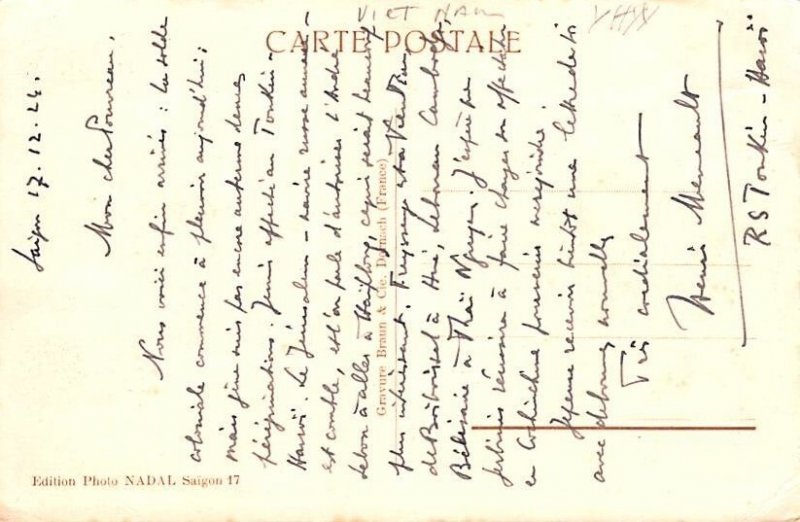 VIET NAM
CARTE POSTALE
Saïgon 17.12.24.
Mon cher Pommeau,
Nous voici enfin arrivés : la solde
coloniale commence à pleuvoir aujourd'hui ;
mais je ne suis pas encore au terme de mes
pérégrinations. Je suis affecté au Tonkin -
Hanoï. Le Jérusalem - navire russe
est comble, est on parle d'autoriser l'André
Lebon à aller à Haïphong, ce qui serait beaucoup
plus intéressant. Freyssey est à Vientiane
de Boisboissel à Hué, Lebonam Cambodge,
Bélisaire à Thaï Nguyen. J'espère
réussir à faire changer son affectation
en Cochinchine
J'espère recevoir bientôt une lettre de toi
avec de bonnes nouvelles
Très cordialement
Henri
RS Tonkin - Hanoï
Gravure Braun & Cie, Dornach (France)
Edition Photo NADAL Saïgon 17